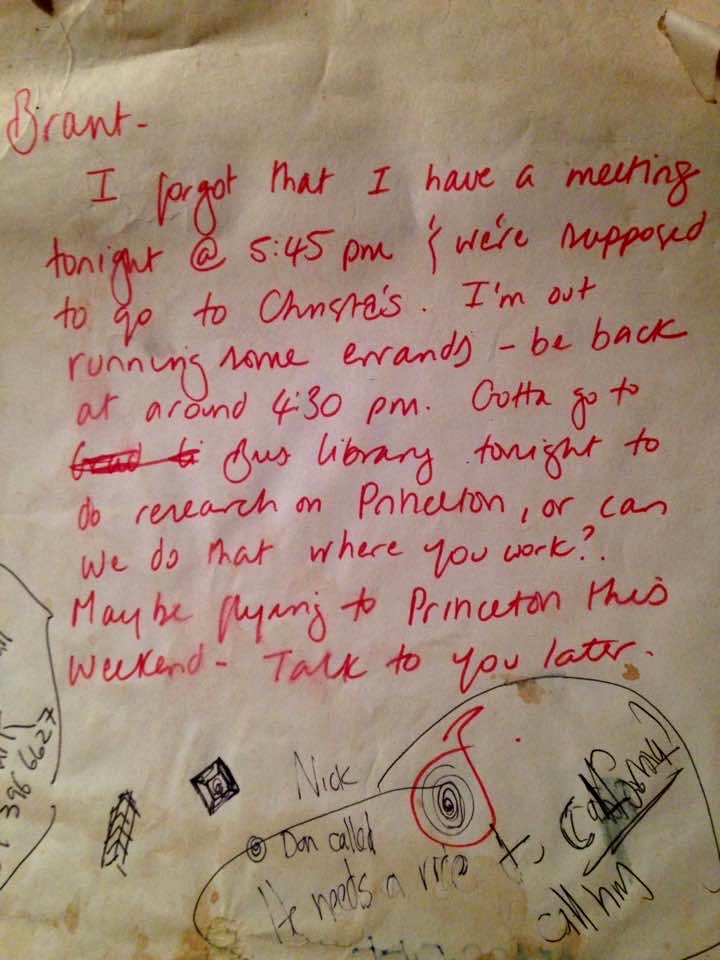 Brant-
I forgot that I have a meeting
tonight @ 5:45 pm & we're supposed
to go to Christa's. I'm out
running some errands - be back
at around 4:30 pm. Gotta go to
Bus library tonight to
do research on Princeton, or can
we do that where you work?.
Maybe flying to Princeton this
weekend - Talk to you later.
396 6627
Nick
Dan called
He needs a ride to California?
call him